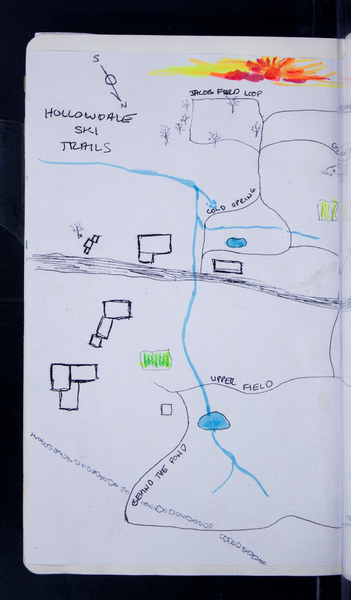 S
N
HOLLOWDALE
SKI
TRAILS
JACOB FORD LOOP
COLD SPRING
UPPER FIELD
BEHIND THE POND